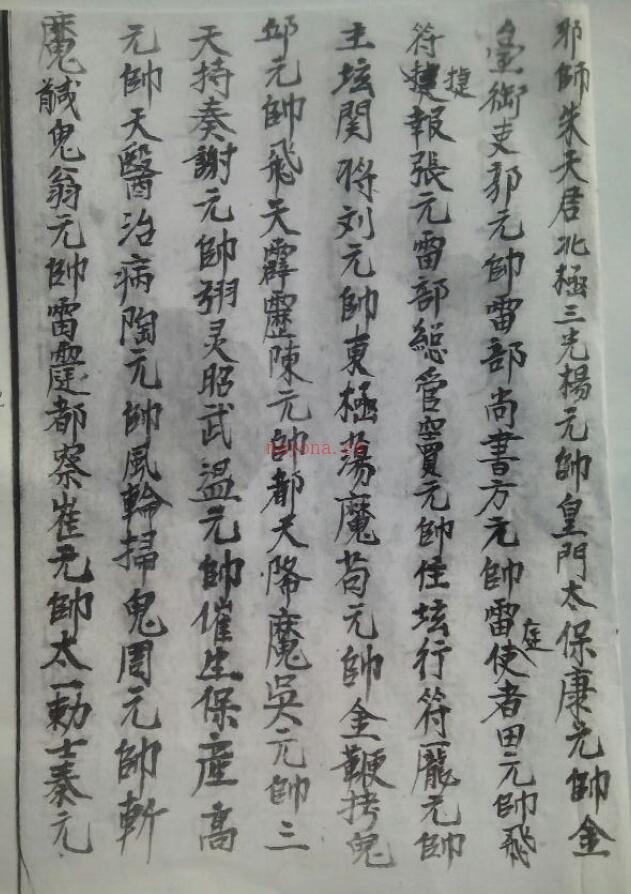 邪師朱天君北極三光楊元帥皇門太保康元帥金
皇衙吏郭元帥雷部尚書方元帥雷庭使者田元帥飛
符捷報張元雷部總管賈元帥住坛行符龐元帥
主坛関将刘元帥東極蕩魔苟元帥金鞭拷鬼
邱元帥飛天霹靂陳元帥都天降魔吳元帥三
天持奏謝元帥翊灵昭武温元帥催生保産高
元帥天醫治病陶元帥風輪掃鬼周元帥斬
魔馘鬼翁元帥雷霆都察崔元帥太一勅士秦元